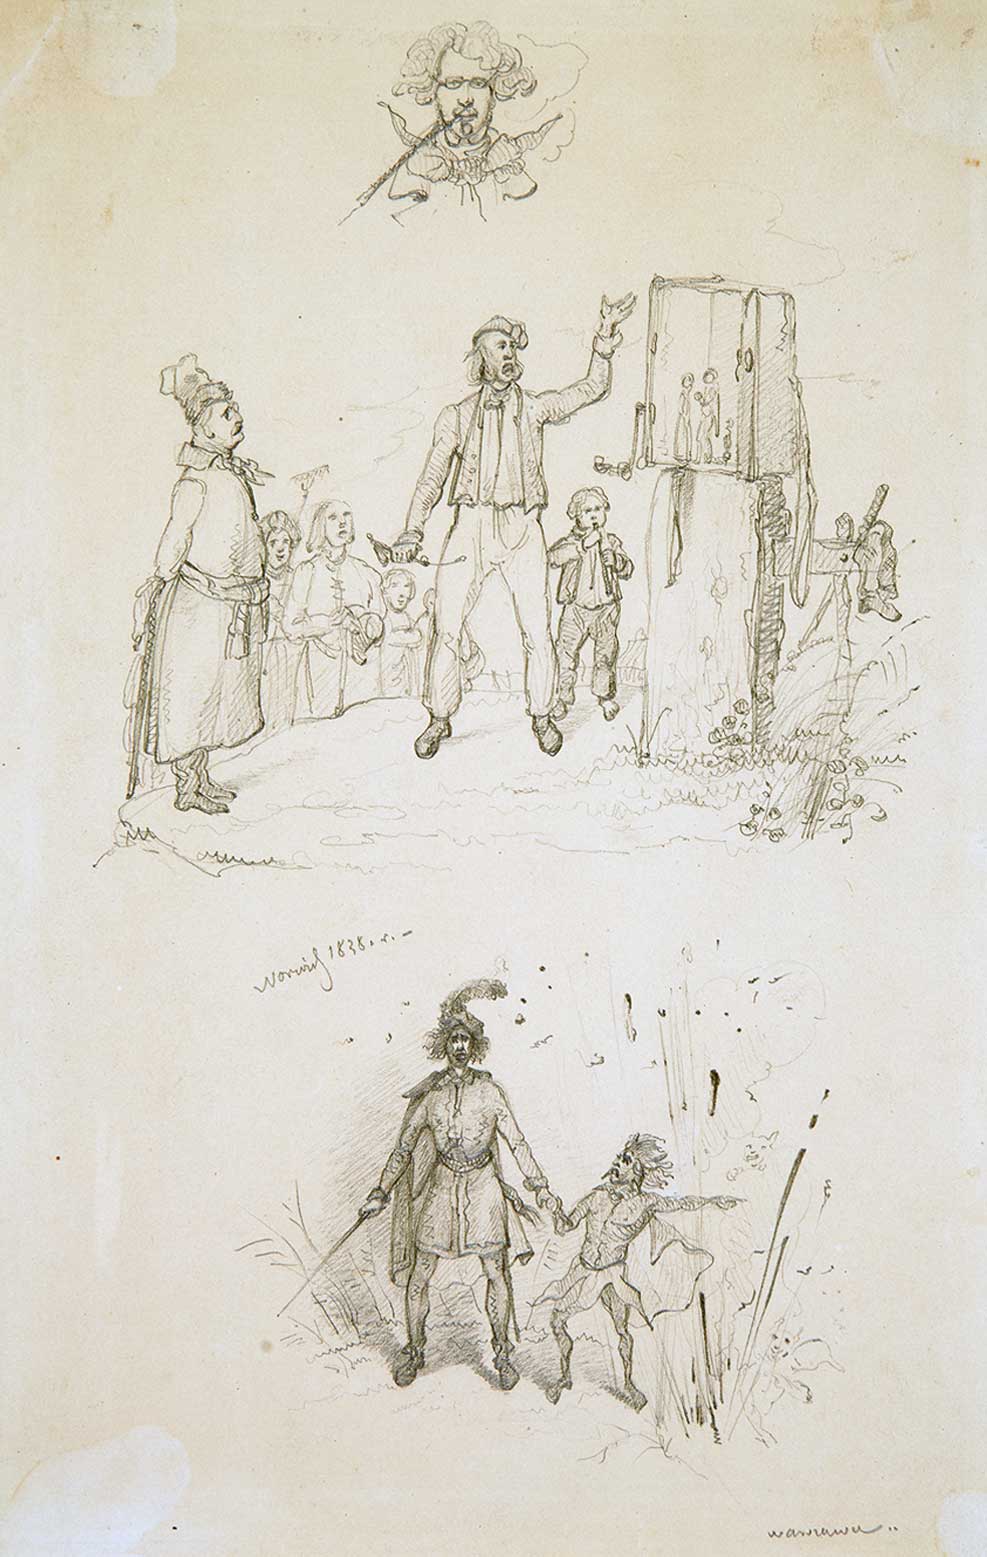 Norwid 1838. r. –
warszawa ..